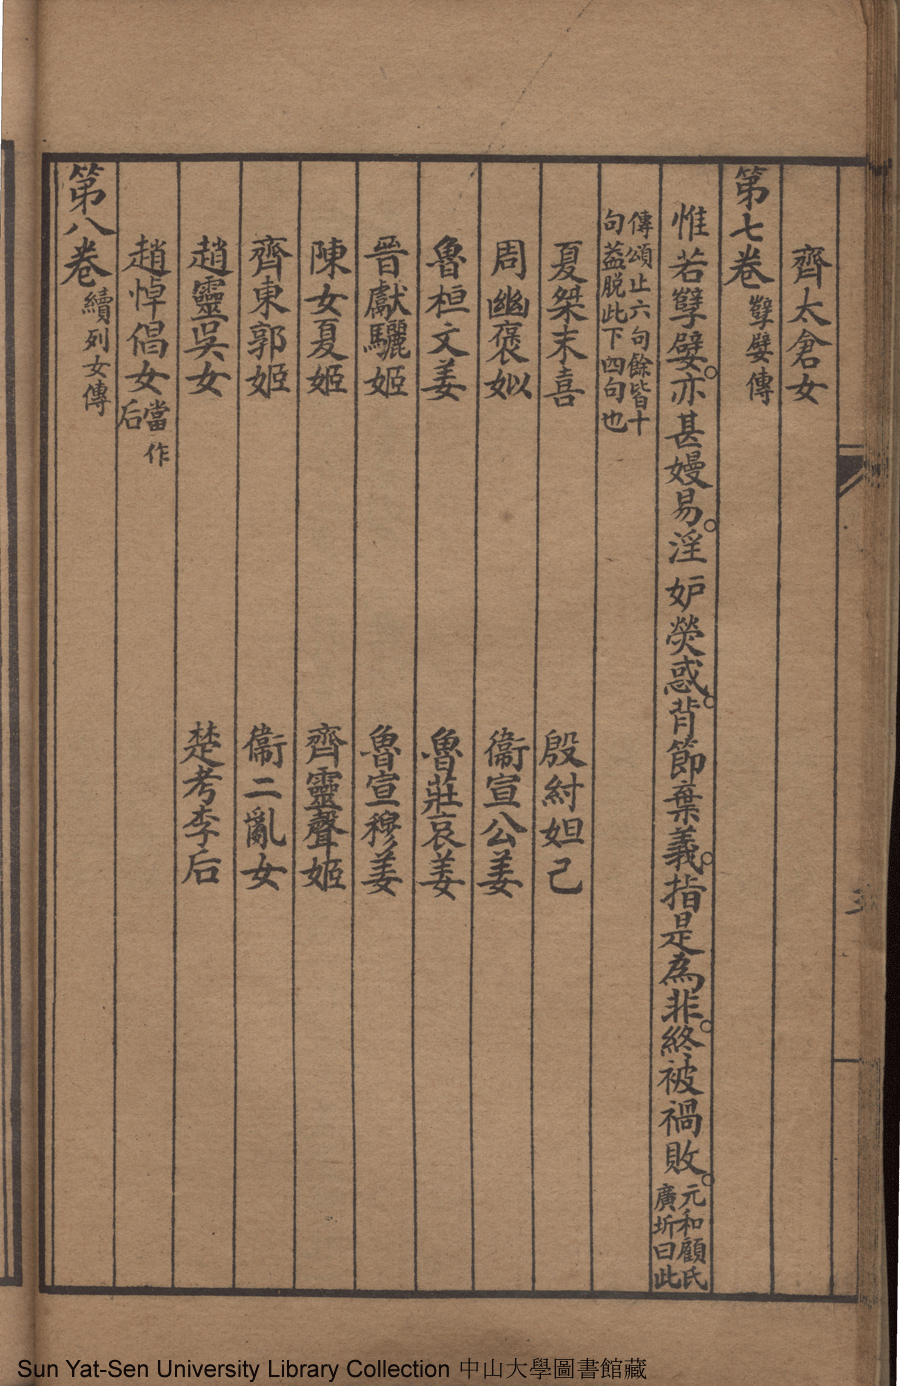 齊太倉女
第七卷孽嬖傳
惟若孽嬖。亦甚嫚易。淫妒熒惑。背節棄義。指是為非。終被禍敗。元和顧氏廣圻曰此
傳頌止六句餘皆十句蓋脫此下四句也
夏桀末喜 殷紂妲己
周幽褒姒 衞宣公姜
魯桓文姜 魯莊哀姜
晉獻驪姬 魯宣穆姜
陳女夏姬 齊靈聲姬
齊東郭姬 衞二亂女
趙靈吳女 楚考李后
趙悼倡女當作后
第八卷續列女傳
Sun Yat-Sen University Library Collection 中山大學圖書館藏